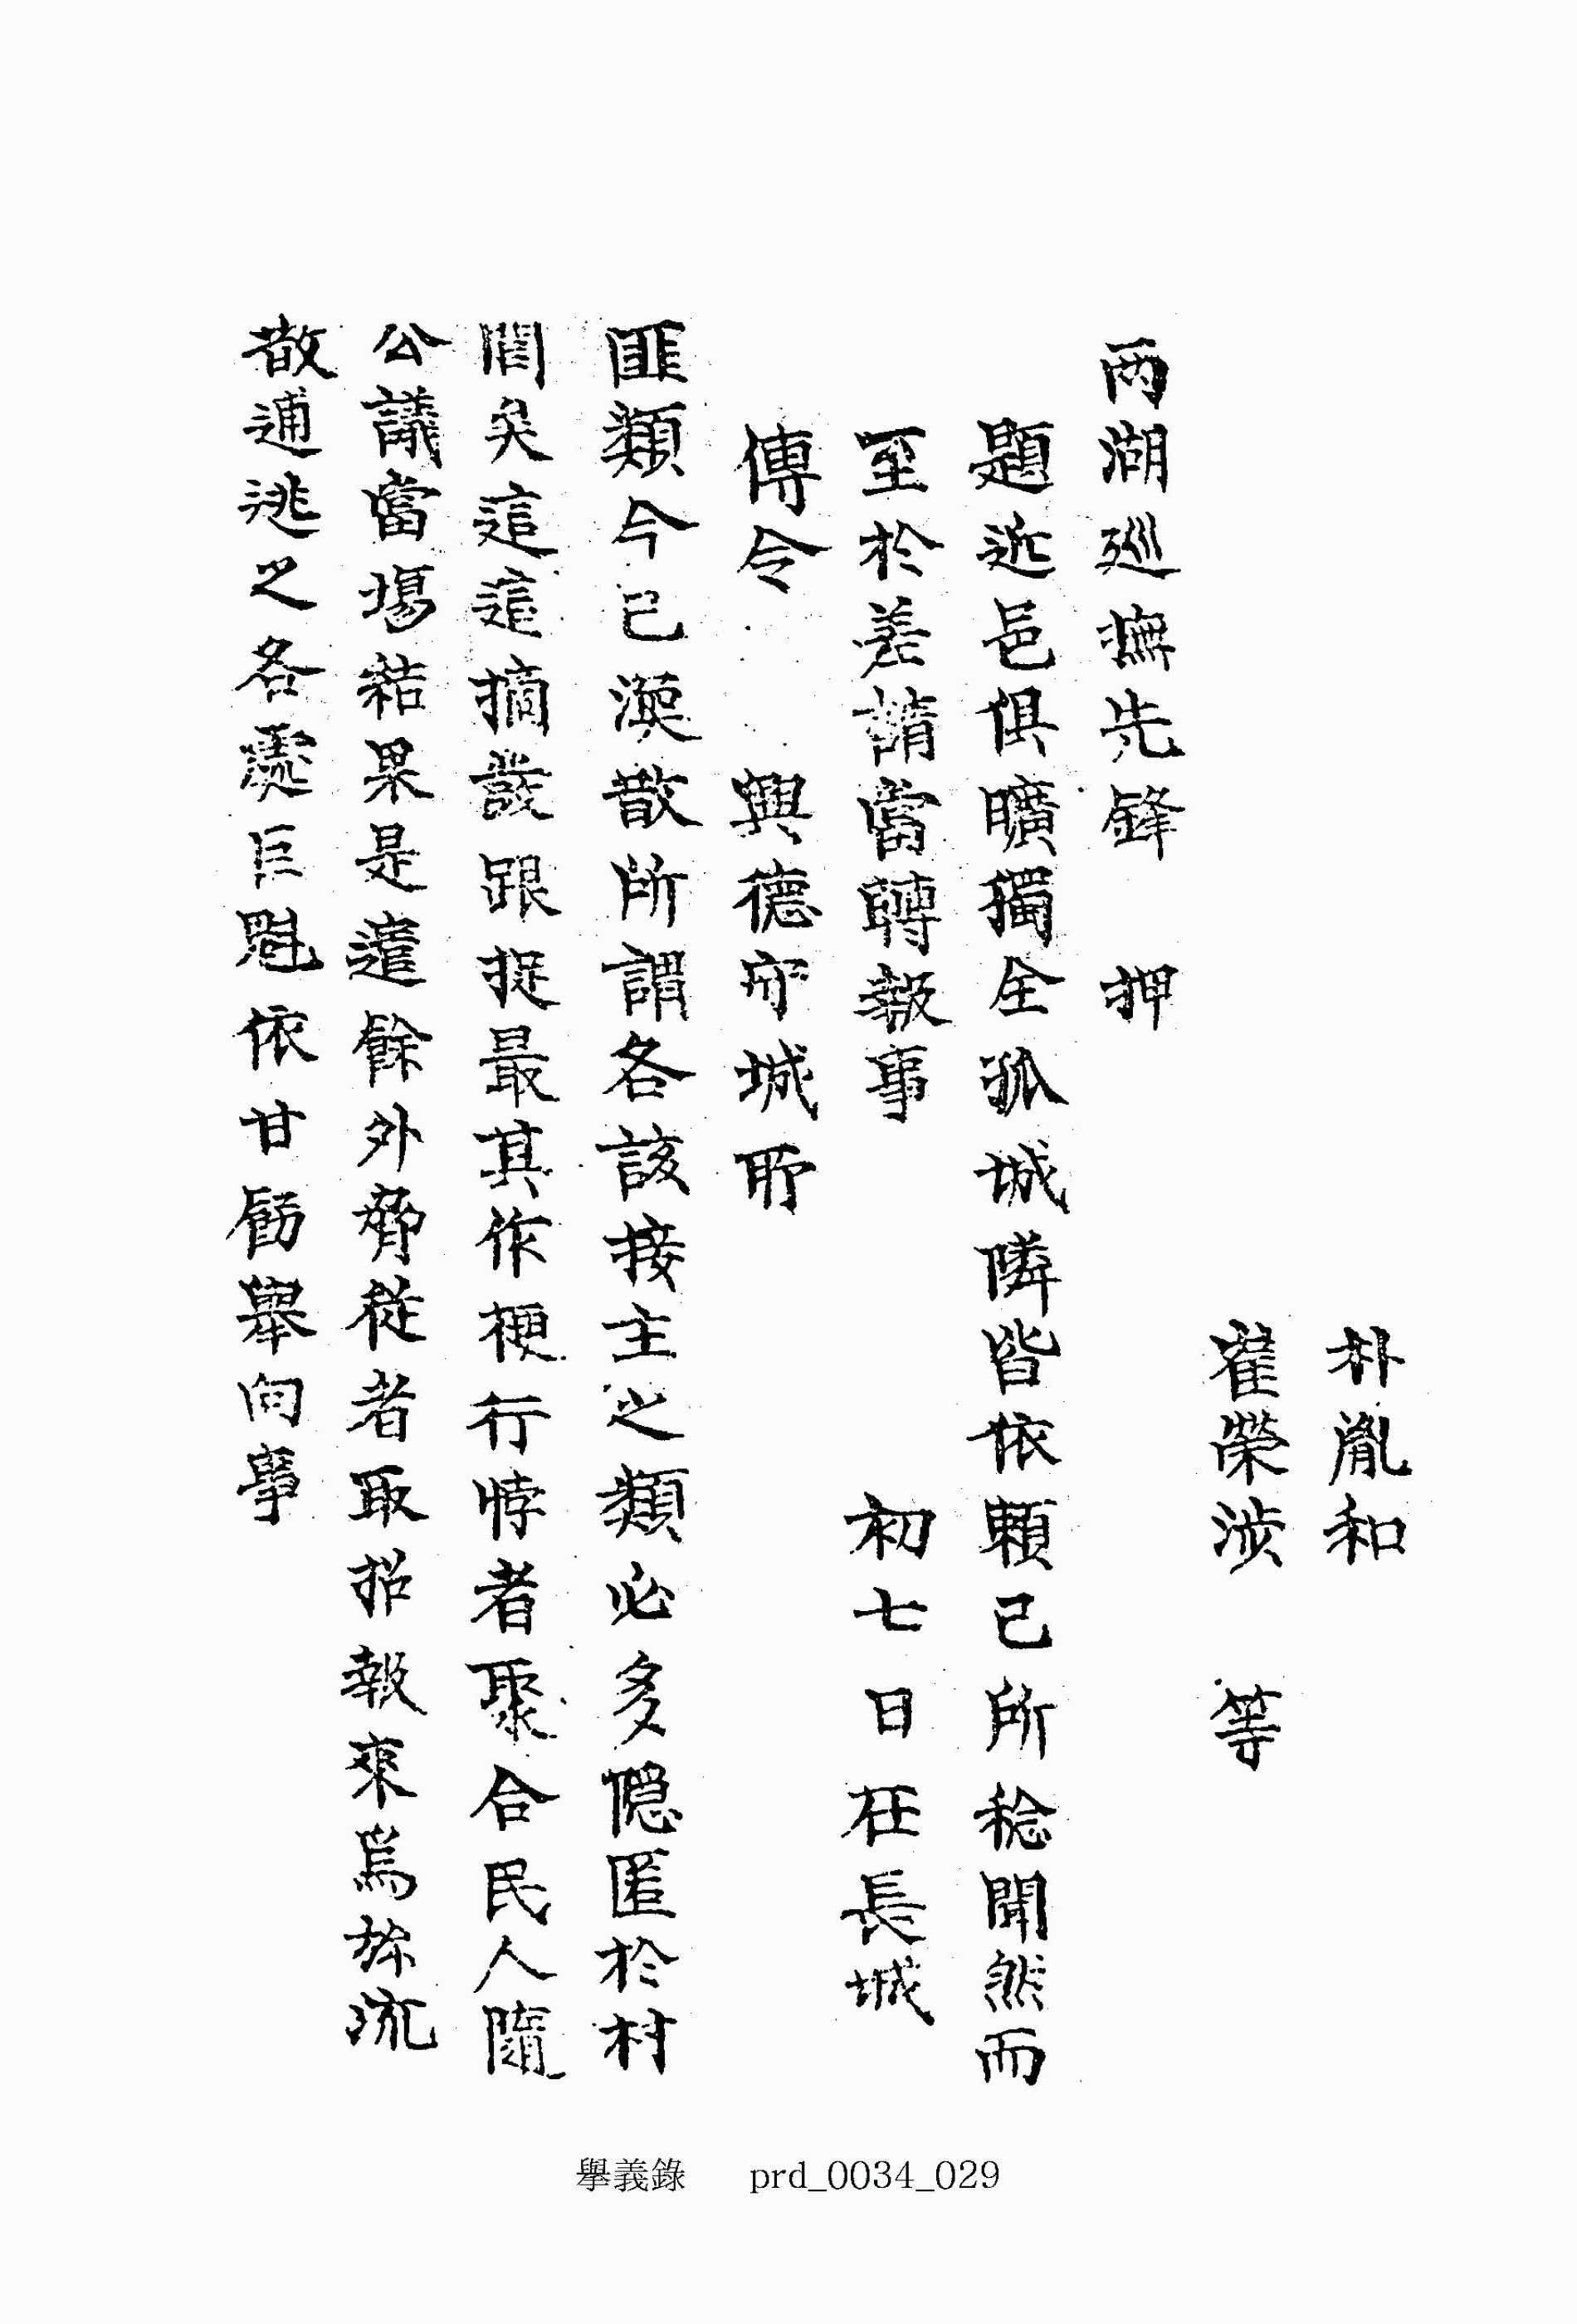 朴胤和
崔榮涉 等
兩湖巡撫先鋒 押
題近邑俱曠獨全孤城隣皆依賴已所稔聞然而
至於差請當轉報事 初七日在長城
傳令 興德守城所
匪類今已渙散所謂各該接主之類必多隱匿於村
閭矣這這摘發跟捉最其作梗行悖者聚合民人隨
公議當場結果是遣餘外脅從者取招報來爲旀流
散逋逃之各處巨魁依甘飭擧向事
擧義錄 prd_0034_029